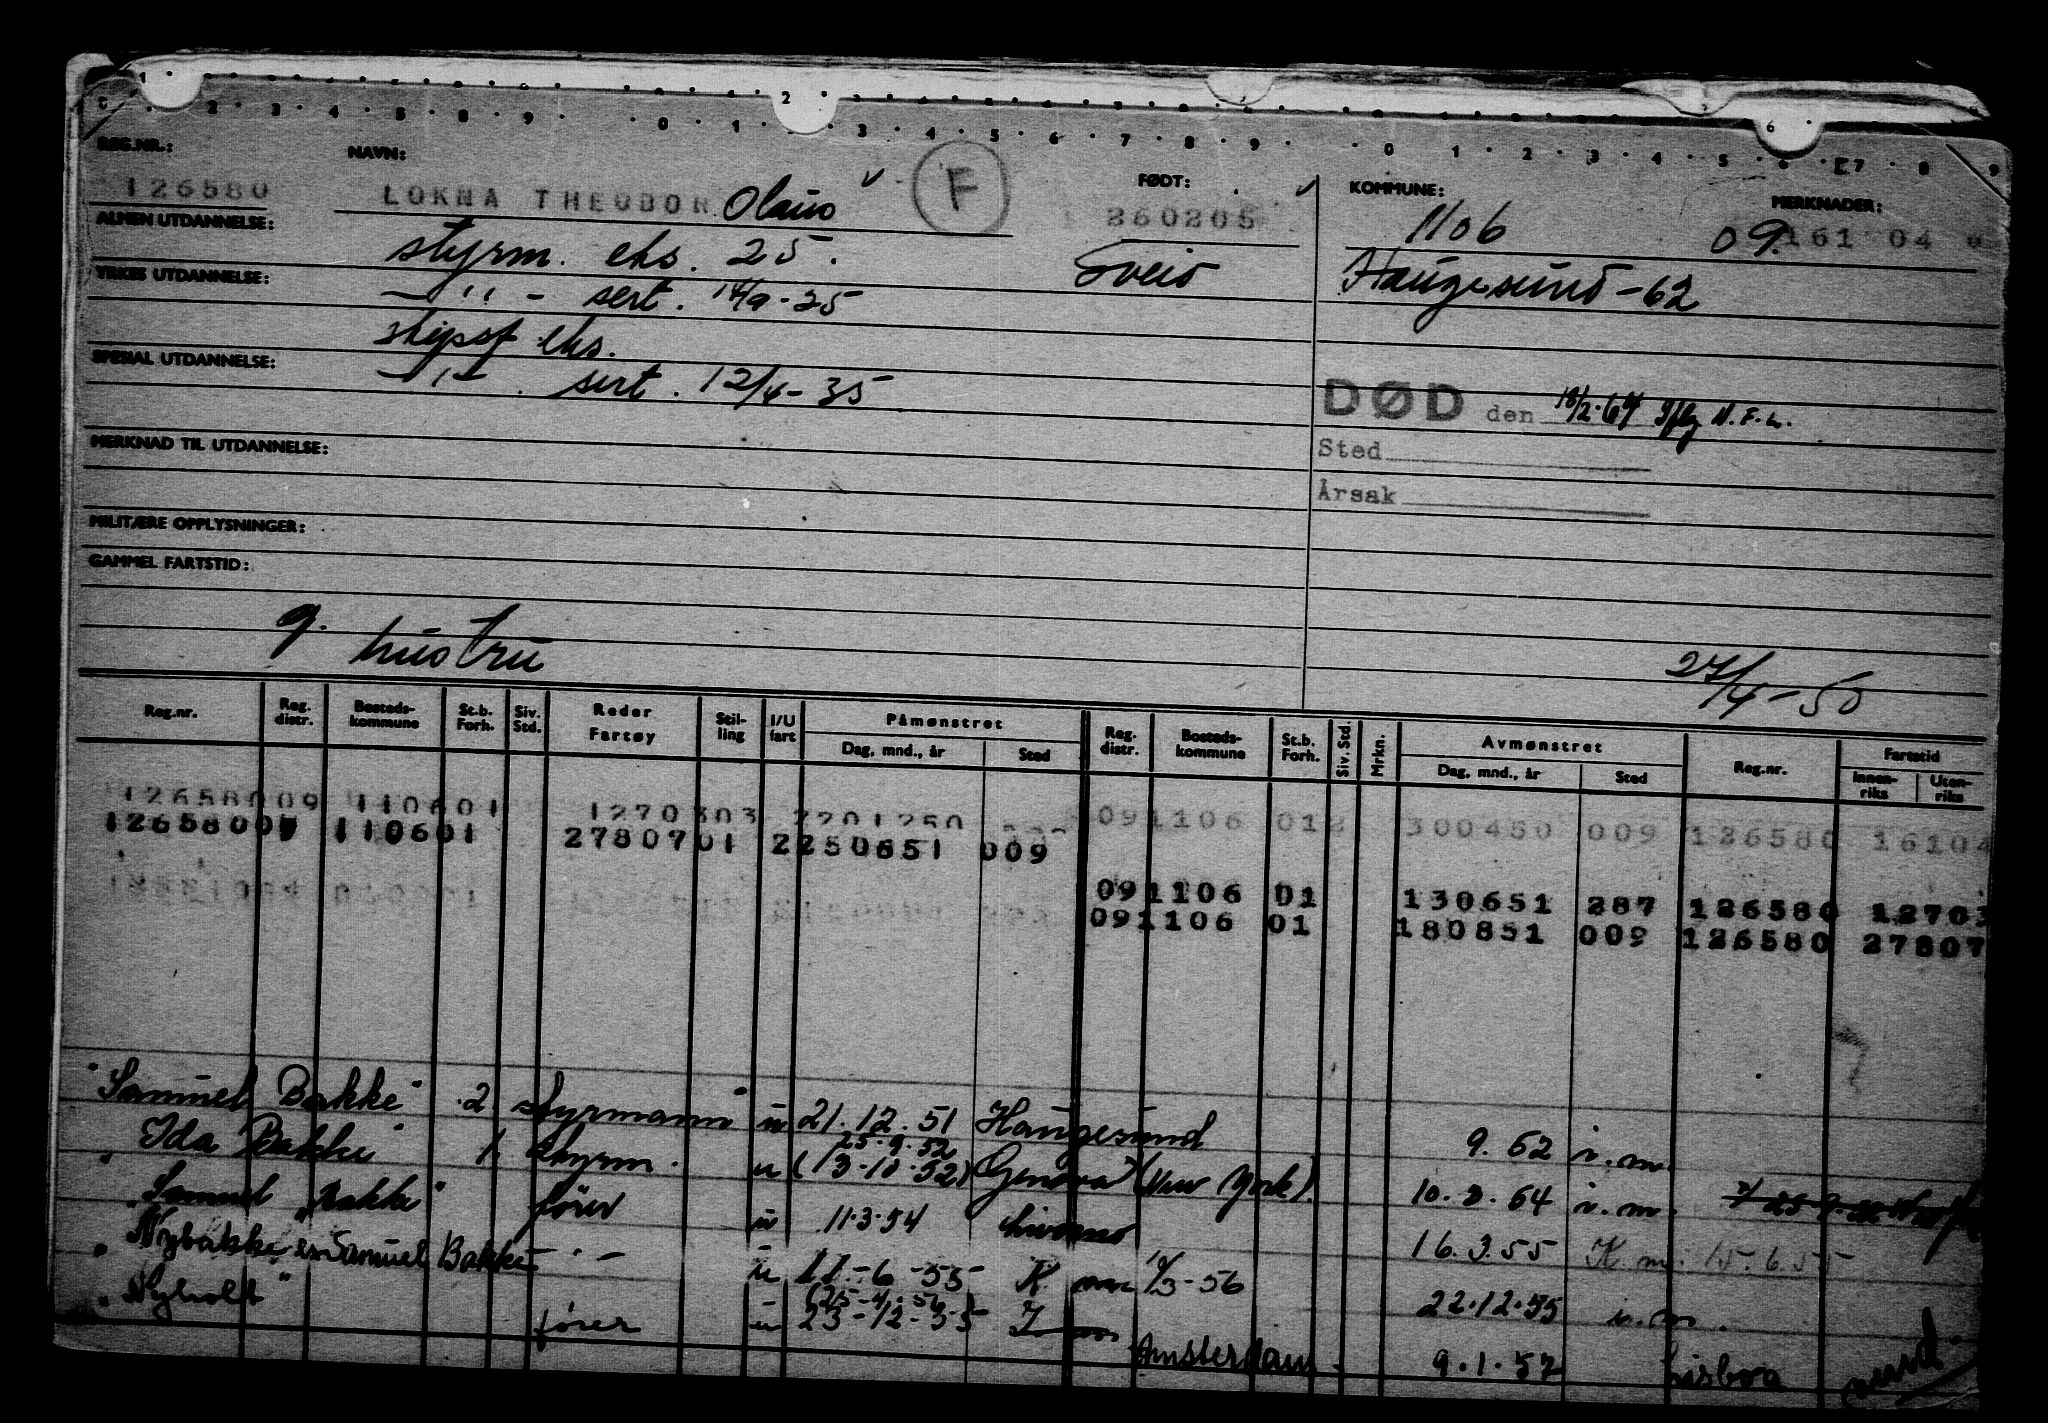 REG.NR.: NAVN: FØDT: KOMMUNE: MERKNADER:
126580 LOKNA THEODOR Olaus F 260205 1106 09. 161 04
ALMEN UTDANNELSE: styrm. eks. 25. Sveio Haugesund -62
YRKES UTDANNELSE: — " — sert. 14/9-25
skipsf. eks.
SPESIAL UTDANNELSE: — " — . sert. 12/4-35
DØD den 18/2.64 iflg N.F.L.
MERKNAD TIL UTDANNELSE:
Sted
Årsak
MILITÆRE OPPLYSNINGER:
GAMMEL FARTSTID:
g. hustru
27/4-50
Reg.nr. Reg. distr. Bosteds-kommune St.b. Forh. Siv. Std. Reder Fartøy Stil-ling I/U fart Påmønstret Dag, mnd., år Sted Reg. distr. Bosteds-kommune St.b. Forh. Siv. Std. Mrkn. Avmønstret Dag, mnd., år Sted Reg.nr. Fartstid Innen-riks Uten-riks
12658009 110601 1270303 2201250 091106 012 300450 009 126580 16104
12658009 110601 2780701 2250651 009
091106 01 130651 287 126580 12703
091106 01 180851 009 126580 27807
"Samuel Bakke" 2 styrmann u 21.12.51 Haugesund 9. 52 i.m.
25.9.52
"Ida Bakke" 1 styrm. u (13.10.52) Genova (New York). 10.3.54 i.m.
"Samuel Bakke" fører u 11.3.54 Livorno 16.3.55 K.m. 15.6.55
"Nybakke" ex Samuel Bakke — " — u 11-6-55 K m 10/3-56 22.12.55 i.m.
(25-4-56)
"Nyholt" fører u 23-12-55 Amsterdam. 9.1.57 Lisboa